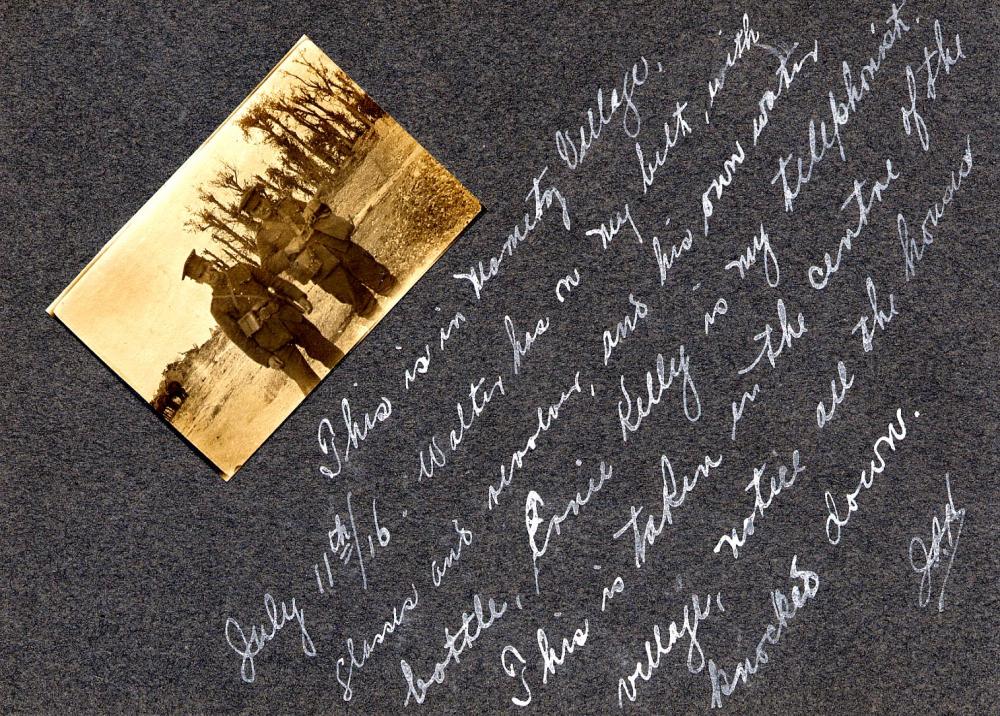 This is in Mametz Village,
July 11th/16. Walter has on my belt, with
glasses and revolver, and his own water
bottle, Ernie Kelly is my telephonist.
This is taken in the centre of the
village, notice all the houses
knocked down.